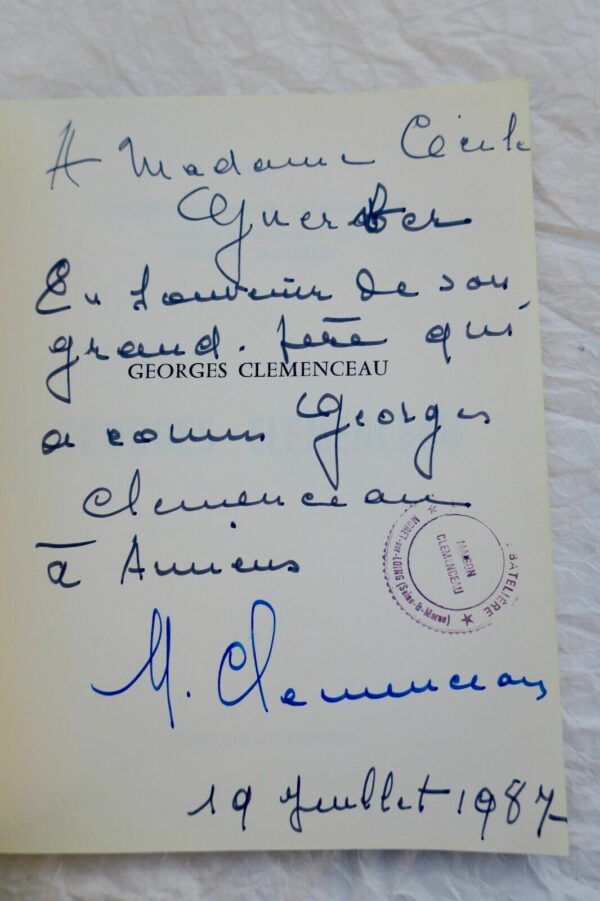 A Madame Cécile
Guerber
En souvenir de son
grand-père qui
GEORGES CLEMENCEAU
a connu Georges
Clemenceau
à Amiens
BATELIÈRE
MAISON
CLEMENCEAU
MORET-sur-LOING (Seine-&-Marne)
M. Clemenceau
19 Juillet 1987